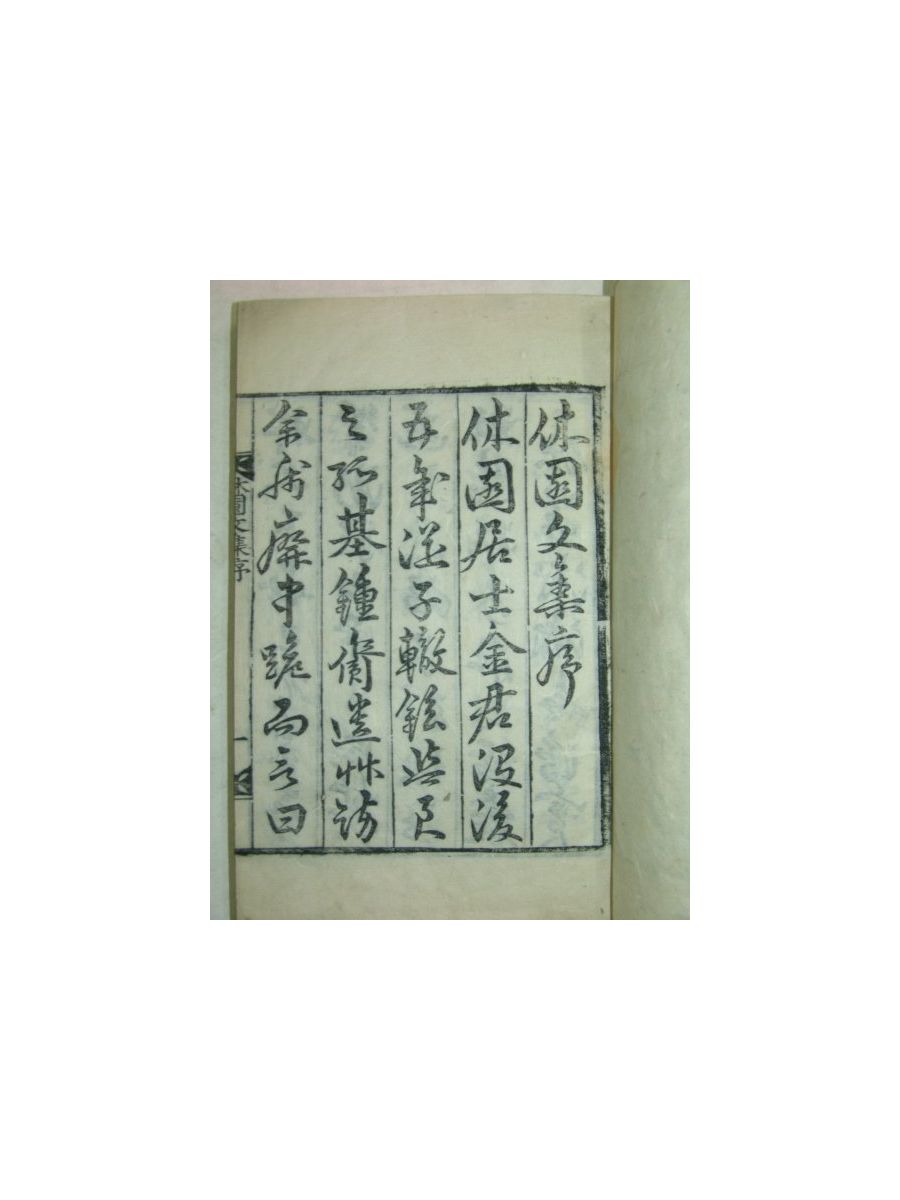 休園文集序
休園居士金君沒後
五年從子轍鉉與
之孤基鍾齎遺艸訪
余於廨中跪而言曰
休園文集序
一